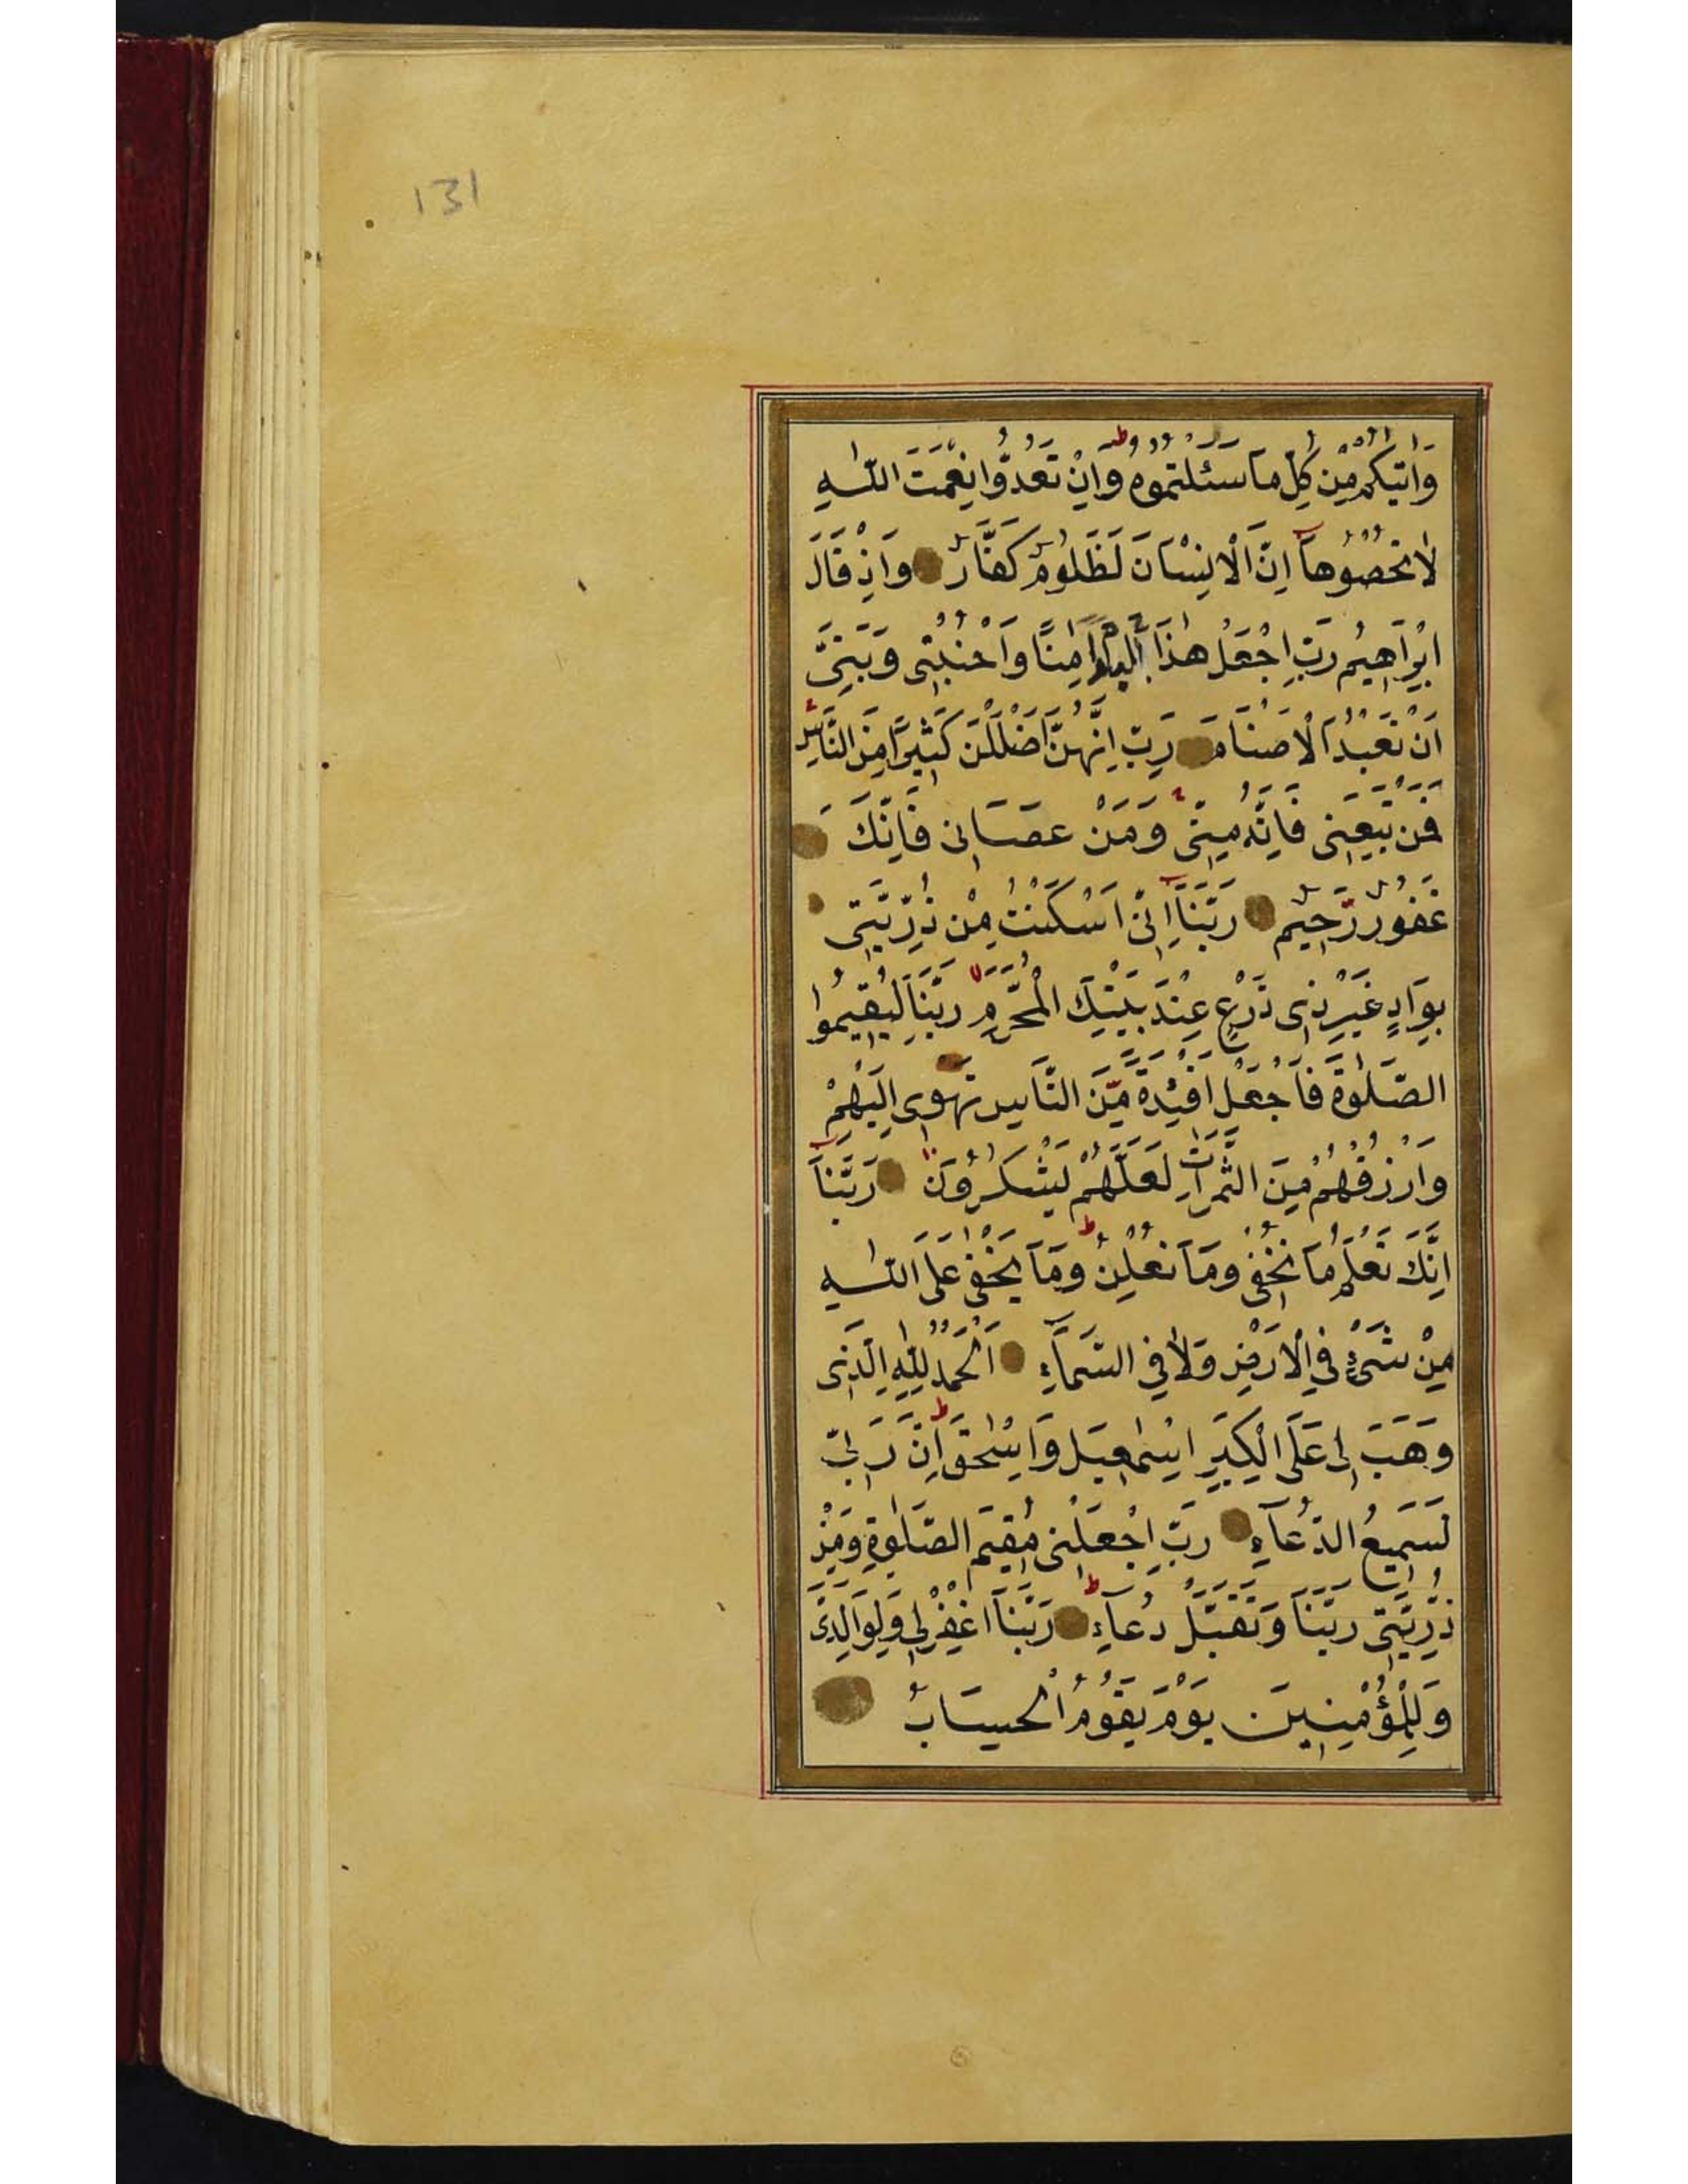 131
وَاٰتٰيكُمْ مِنْ كُلِّ مَا سَئَلْتُمُوهُ وَاِنْ تَعُدُّوا نِعْمَتَ اللّٰهِ
لَا تُحْصُوهَا اِنَّ الْاِنْسَانَ لَظَلُومٌ كَفَّارٌ وَاِذْ قَالَ
اِبْرَاهِيمُ رَبِّ اجْعَلْ هٰذَا الْبَلَدَ اٰمِنًا وَاجْنُبْنِى وَبَنِىَّ
اَنْ نَعْبُدَ الْاَصْنَامَ رَبِّ اِنَّهُنَّ اَضْلَلْنَ كَثِيرًا مِنَ النَّاسِ
فَمَنْ تَبِعَنِى فَاِنَّهُ مِنِّى وَمَنْ عَصَانِى فَاِنَّكَ
غَفُورٌ رَّحِيمٌ رَبَّنَا اِنِّى اَسْكَنْتُ مِنْ ذُرِّيَّتِى
بِوَادٍ غَيْرِ ذِى زَرْعٍ عِنْدَ بَيْتِكَ الْمُحَرَّمِ رَبَّنَا لِيُقِيمُوا
الصَّلٰوةَ فَاجْعَلْ اَفْئِدَةً مِّنَ النَّاسِ تَهْوِى اِلَيْهِمْ
وَارْزُقْهُمْ مِنَ الثَّمَرَاتِ لَعَلَّهُمْ يَشْكُرُونَ رَبَّنَا
اِنَّكَ تَعْلَمُ مَا نُخْفِى وَمَا نُعْلِنُ وَمَا يَخْفٰى عَلَى اللّٰهِ
مِنْ شَىْءٍ فِى الْاَرْضِ وَلَا فِى السَّمَاءِ اَلْحَمْدُ لِلّٰهِ الَّذِى
وَهَبَ لِى عَلَى الْكِبَرِ اِسْمٰعِيلَ وَاِسْحٰقَ اِنَّ رَبِّى
لَسَمِيعُ الدُّعَاءِ رَبِّ اجْعَلْنِى مُقِيمَ الصَّلٰوةِ وَمِنْ
ذُرِّيَّتِى رَبَّنَا وَتَقَبَّلْ دُعَاءِ رَبَّنَا اغْفِرْ لِى وَلِوَالِدَىَّ
وَلِلْمُؤْمِنِينَ يَوْمَ يَقُومُ الْحِسَابُ